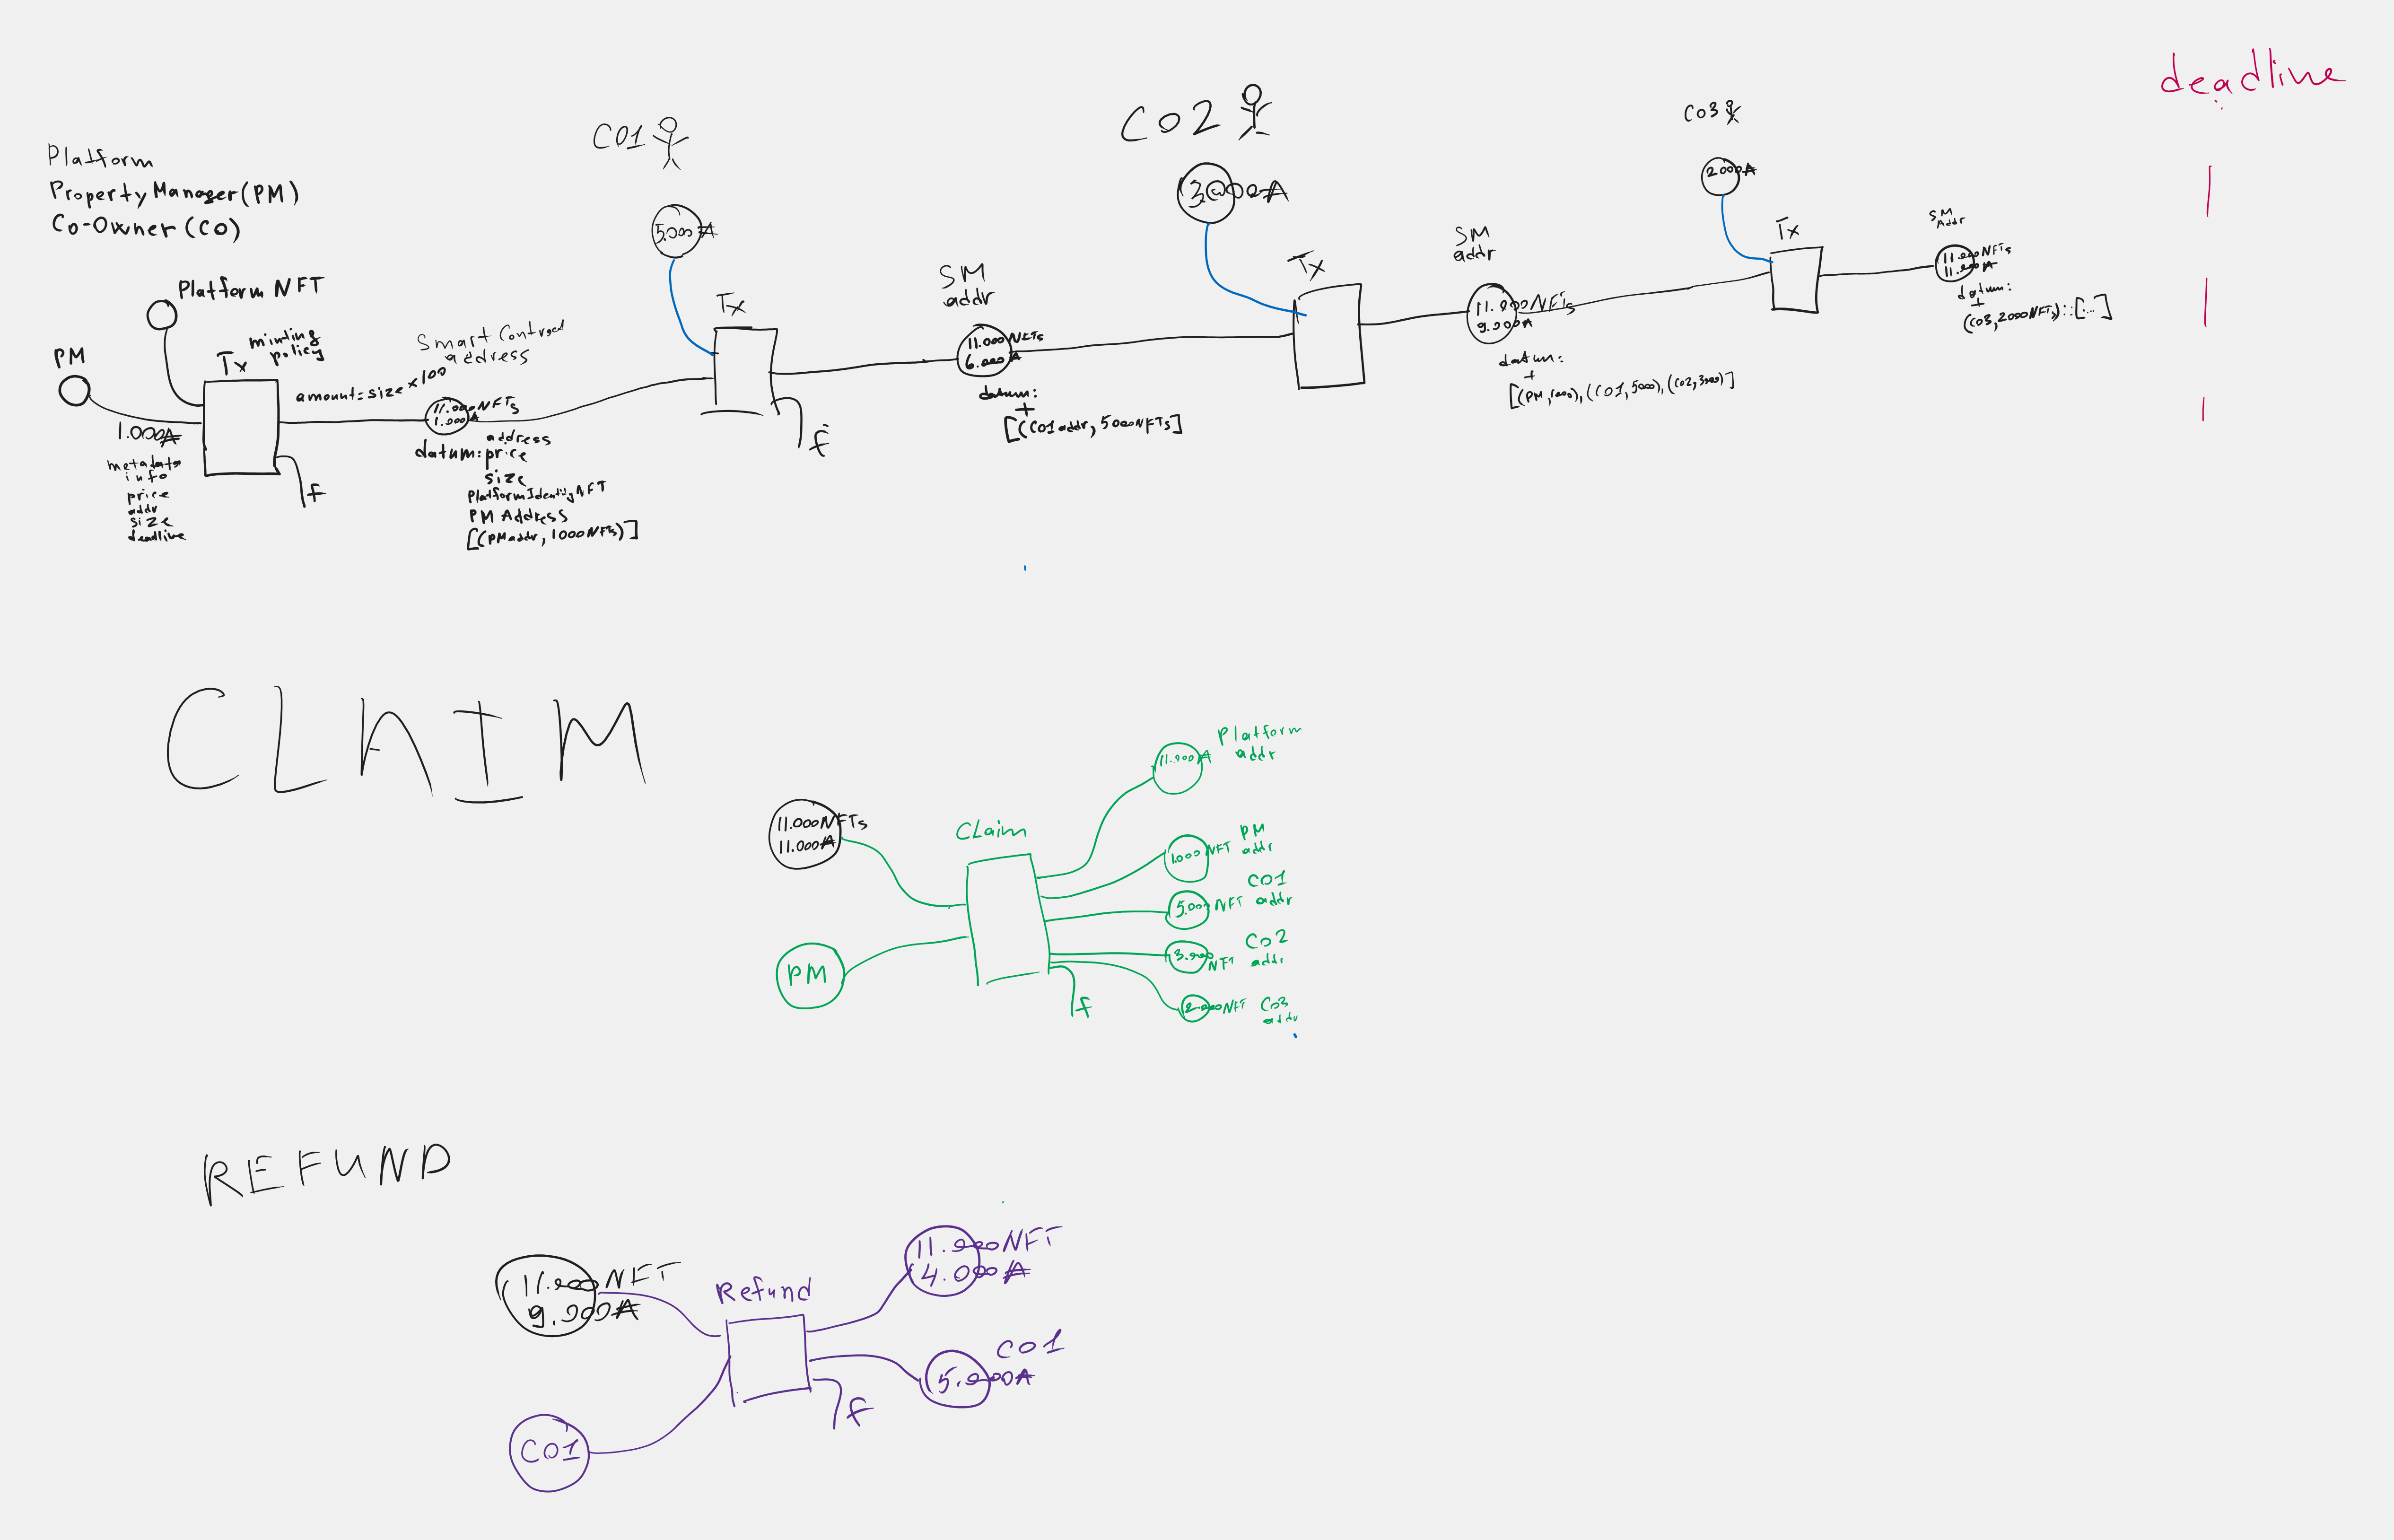 deadline
Platform
Property Manager (PM)
Co-Owner (CO)
Platform NFT
PM
minting
policy
Tx
1.000₳
metadata
info
price
addr
size
deadline
f
amount = size × 100
Smart Contract
address
11.000 NFTs
1.000₳
address
datum: price
size
Platform Identity NFT
PM Address
[(PM addr, 1000 NFTs)]
CO1
5.000₳
Tx
f
SM
addr
11.000 NFTs
6.000₳
datum:
+
[(CO1 addr, 5000 NFTs]
CO2
3000₳
Tx
SM
addr
11.000 NFTs
9.000₳
datum:
+
[(PM, 1000), (CO1, 5000), (CO2, 3000)]
CO3
2000₳
Tx
SM
Addr
11.000 NFTs
11.000₳
datum:
+
(CO3, 2000 NFTs)::[...]
CLAIM
11.000 NFTs
11.000₳
PM
Claim
f
Platform
addr
11.000₳
PM
addr
1.000 NFT
CO1
addr
5.000 NFT
CO2
addr
3.000
NFT
2.000 NFT
CO3
addr
REFUND
11.000 NFT
9.000₳
CO1
Refund
f
11.000 NFT
4.000₳
CO1
5.000₳